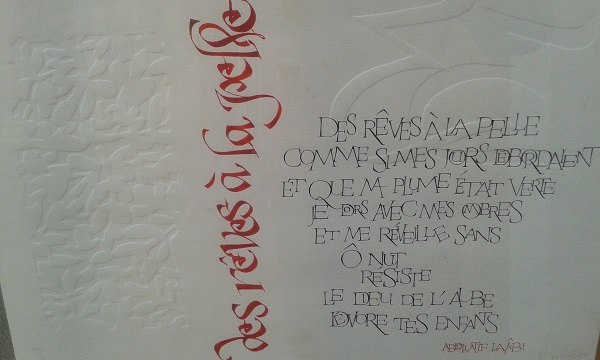 des rêves à la pelle
DES RÊVES À LA PELLE
COMME SI MES JOURS DÉBORDAIENT
ET QUE MA PLUME ÉTAIT VERTE
JE DORS AVEC MES OMBRES
ET ME RÉVEILLE SANS
Ô NUIT
RÉSISTE
LE DIEU DE L'AUBE
DÉVORE TES ENFANTS
ABDELLATIF LAÂBI